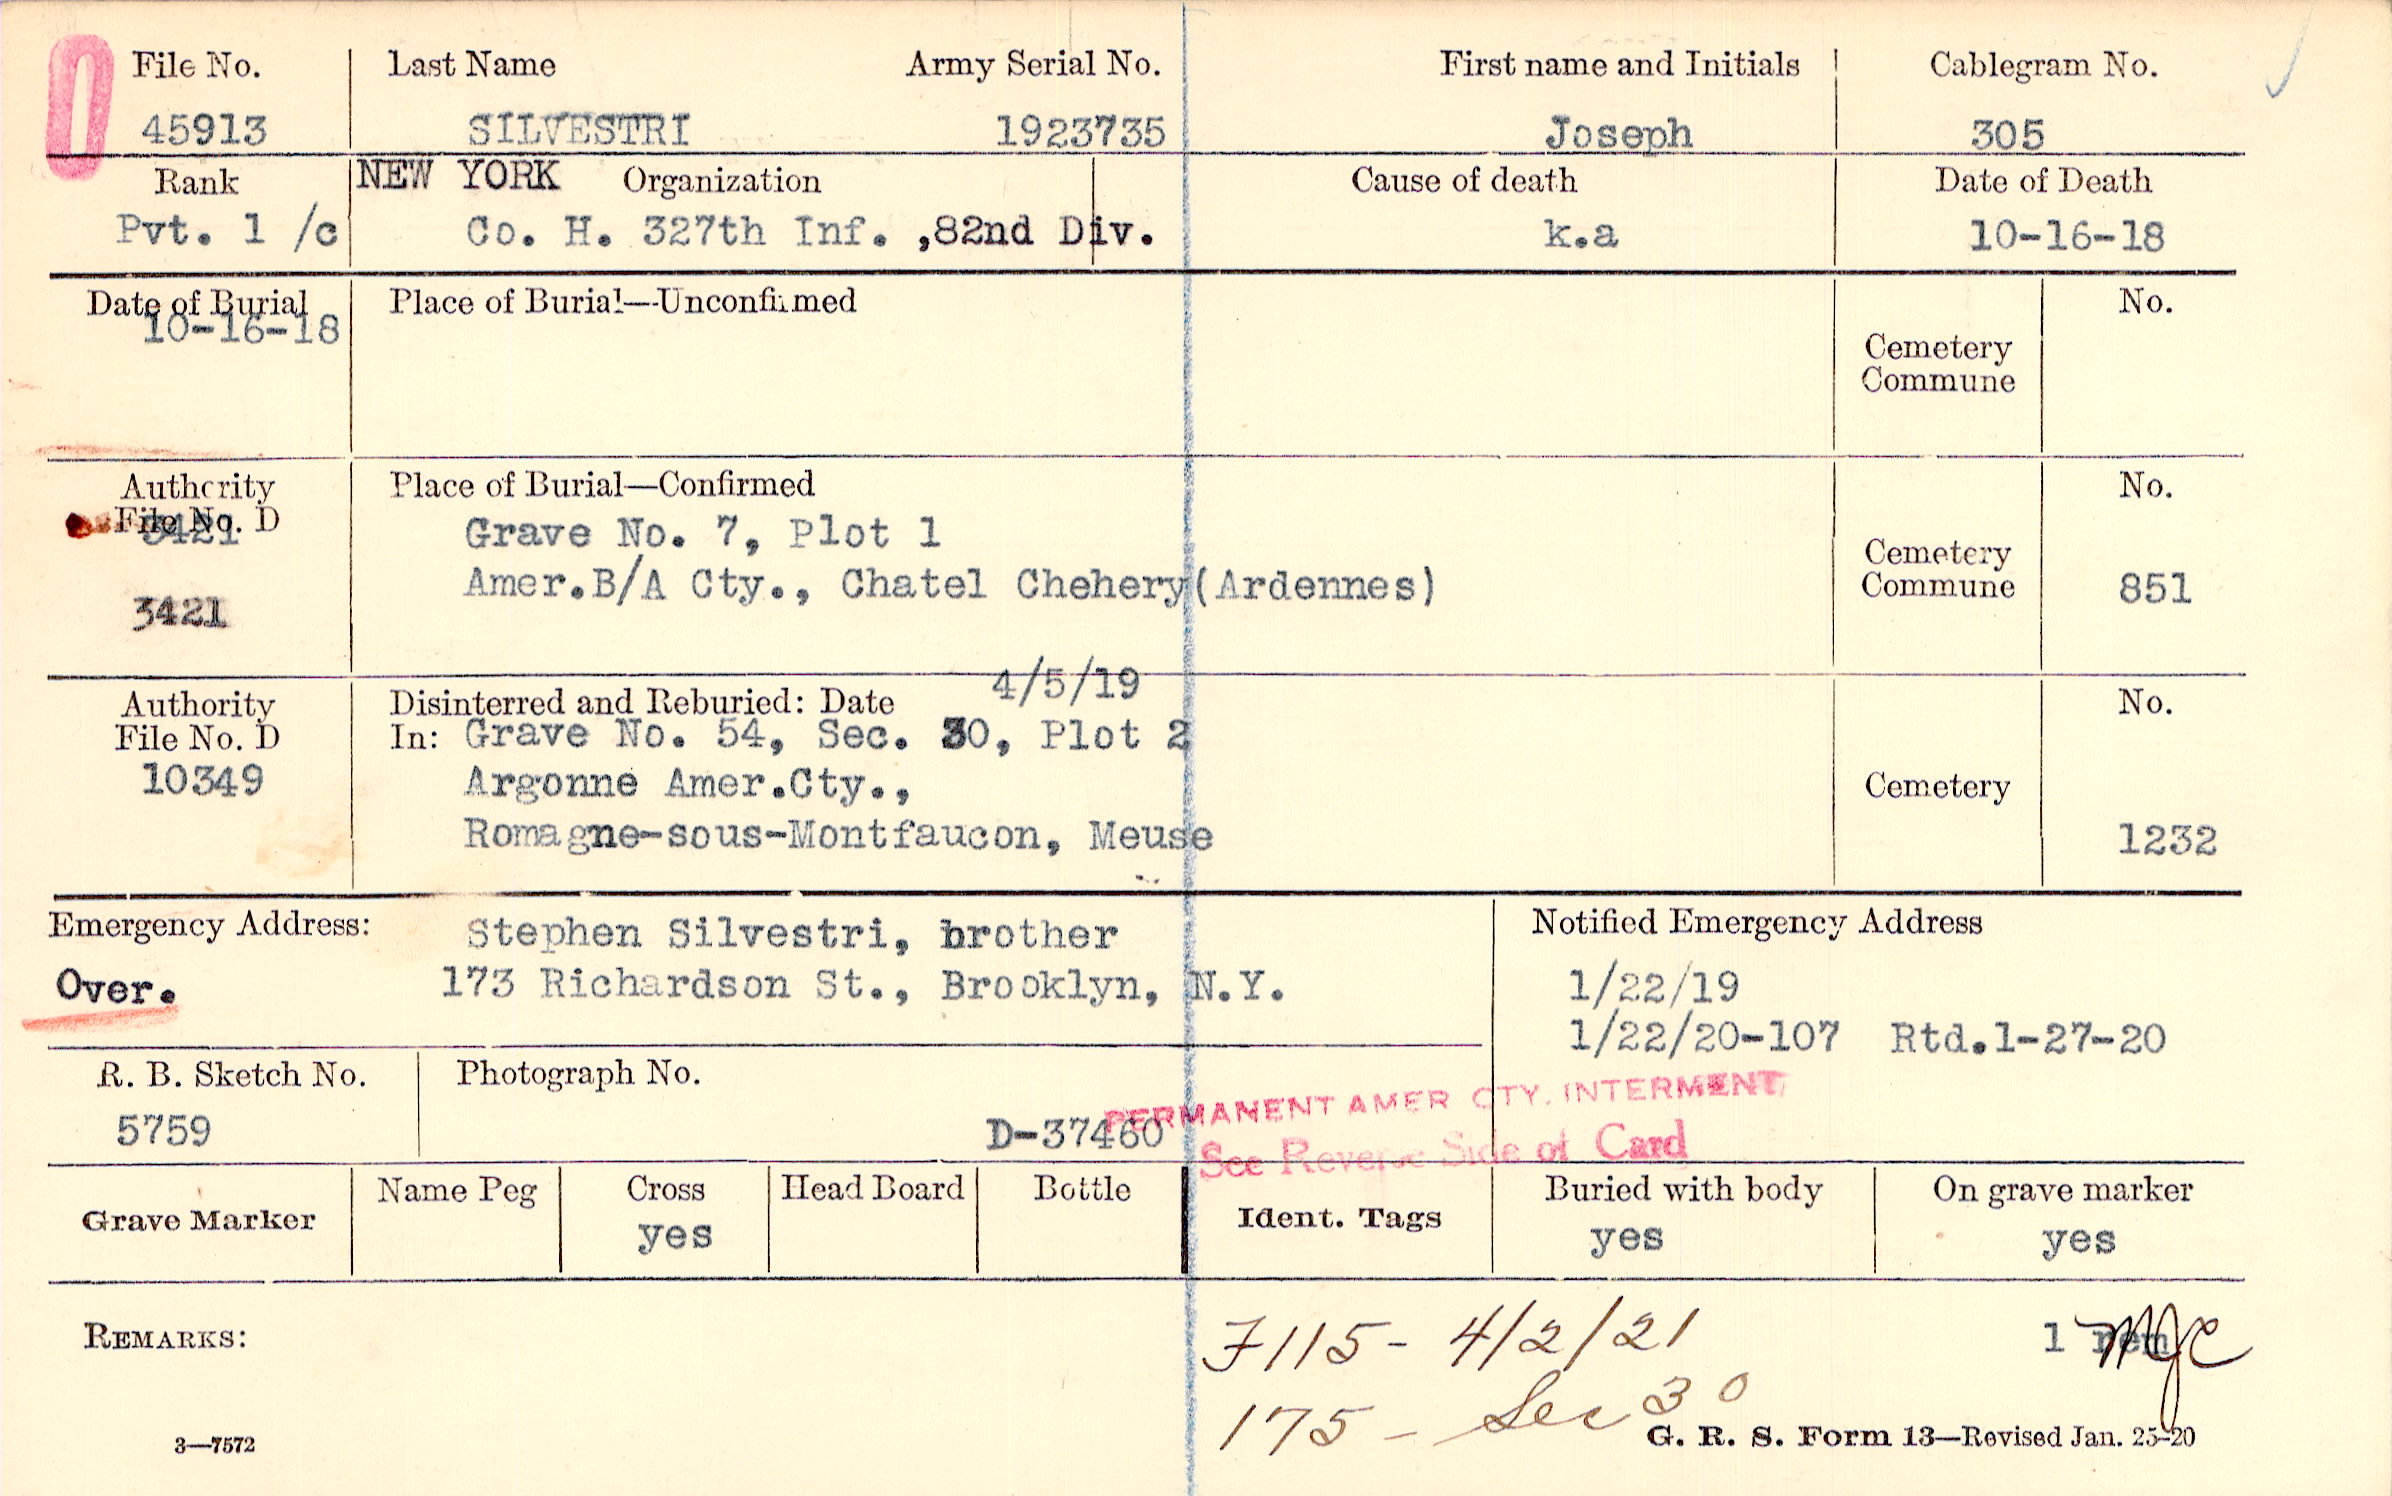 0
File No. Last Name Army Serial No. First name and Initials Cablegram No.
45913 SILVESTRI 1923735 Joseph 305
Rank NEW YORK Organization Cause of death Date of Death
Pvt. 1 /c Co. H. 327th Inf. ,82nd Div. k.a 10-16-18
Date of Burial Place of Burial—Unconfirmed No.
10-16-18
Cemetery
Commune
Authority Place of Burial—Confirmed No.
File No. D
3421 Grave No. 7, Plot 1
Cemetery
Amer.B/A Cty., Chatel Chehery(Ardennes) Commune 851
3421
4/5/19
Authority Disinterred and Reburied: Date No.
File No. D In: Grave No. 54, Sec. 30, Plot 2
10349 Argonne Amer.Cty., Cemetery
Romagne-sous-Montfaucon, Meuse 1232
Emergency Address: Stephen Silvestri, brother Notified Emergency Address
Over. 173 Richardson St., Brooklyn, N.Y. 1/22/19
1/22/20-107 Rtd.1-27-20
R. B. Sketch No. Photograph No.
PERMANENT AMER CTY. INTERMENT
5759 D-37460
See Reverse Side of Card
Grave Marker Name Peg Cross Head Board Bottle Ident. Tags Buried with body On grave marker
yes yes yes
REMARKS: F115- 4/2/21 1 rem
175 - Sec 30
3—7572 G. R. S. Form 13—Revised Jan. 25-20